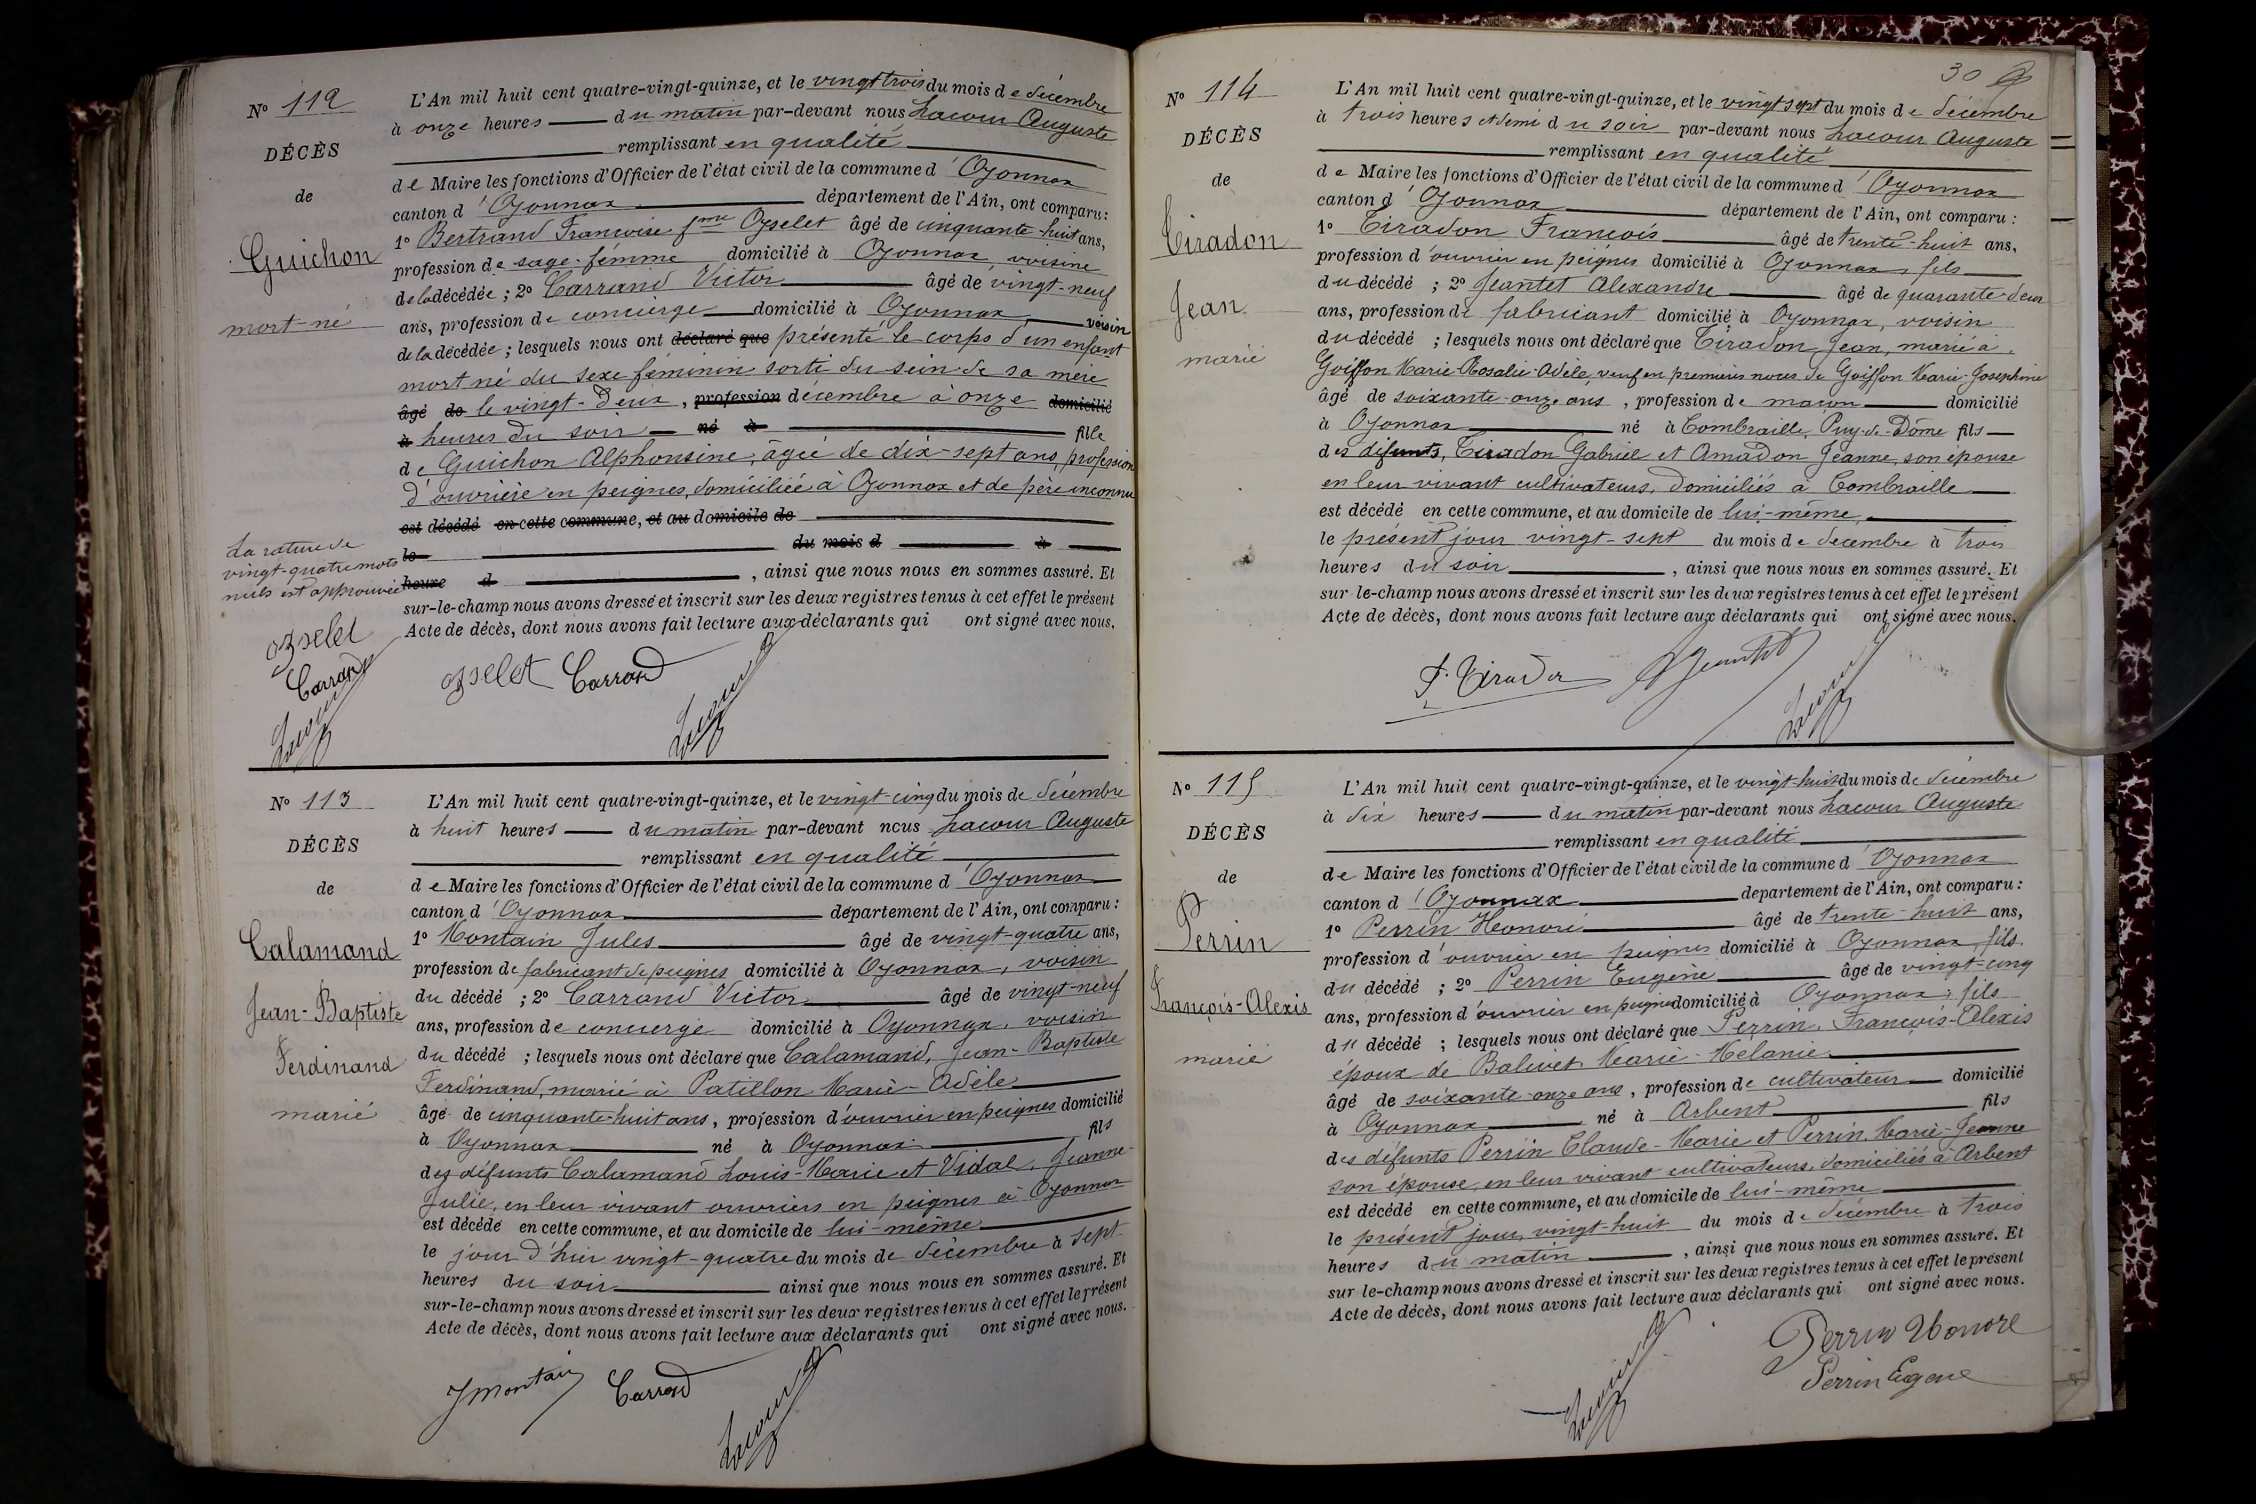 No 112
DÉCÈS
de
Guichon
mort-né
L'An mil huit cent quatre-vingt-quinze, et le vingt trois du mois de décembre
à onze heures du matin par-devant nous Lacour Auguste
remplissant en qualité
de Maire les fonctions d'Officier de l'état civil de la commune d'Oyonnax
canton d'Oyonnax département de l'Ain, ont comparu:
1o Bertrand Francoise fme Ozselet âgé de cinquante-huit ans,
profession de sage-femme domicilié à Oyonnax, voisine
de la décédée; 2o Carrand Victor âgé de vingt-neuf
ans, profession de concierge domicilié à Oyonnax, voisin
de la décédée; lesquels nous ont déclaré que présenté le corps d'un enfant
mort né du sexe féminin sorti du sein de sa mère
âgé de le vingt-deux, profession décembre à onze domicilié
à heures du soir né à fille
de Guichon Alphonsine, âgée de dix-sept ans, profession
d'ouvrière en peignes, domiciliée à Oyonnax et de père inconnu
est décédé en cette commune, et au domicile de
le du mois d à
heure d , ainsi que nous nous en sommes assuré. Et
sur-le-champ nous avons dressé et inscrit sur les deux registres tenus à cet effet le présent
Acte de décès, dont nous avons fait lecture aux déclarants qui ont signé avec nous.
La rature de
vingt-quatre mots
nuls est approuvée
ozselet
Carrand
Lacour
ozselet Carrand
Lacour
No 113
DÉCÈS
de
Calamand
Jean-Baptiste
Ferdinand
marié
L'An mil huit cent quatre-vingt-quinze, et le vingt-cinq du mois de décembre
à huit heures du matin par-devant nous Lacour Auguste
remplissant en qualité
de Maire les fonctions d'Officier de l'état civil de la commune d'Oyonnax
canton d'Oyonnax département de l'Ain, ont comparu:
1o Montain Jules âgé de vingt-quatre ans,
profession de fabricant de peignes domicilié à Oyonnax, voisin
du décédé; 2o Carrand Victor âgé de vingt-neuf
ans, profession de concierge domicilié à Oyonnax, voisin
du décédé; lesquels nous ont déclaré que Calamand, Jean-Baptiste
Ferdinand, marié à Patillon Marie-Adèle
âgé de cinquante-huit ans, profession d'ouvrier en peignes domicilié
à Oyonnax né à Oyonnax fils
des défunts Calamand Louis-Marie et Vidal, Jeanne-
Julie, en leur vivant ouvriers en peignes à Oyonnax
est décédé en cette commune, et au domicile de lui-même
le jour d'hier vingt-quatre du mois de décembre à sept
heures du soir ainsi que nous nous en sommes assuré. Et
sur-le-champ nous avons dressé et inscrit sur les deux registres tenus à cet effet le présent
Acte de décès, dont nous avons fait lecture aux déclarants qui ont signé avec nous.
J Montain Carrand
Lacour
30
No 114
DÉCÈS
de
Tiradon
Jean
marié
L'An mil huit cent quatre-vingt-quinze, et le vingt sept du mois de décembre
à trois heures et demi du soir par-devant nous Lacour Auguste
remplissant en qualité
de Maire les fonctions d'Officier de l'état civil de la commune d'Oyonnax
canton d'Oyonnax département de l'Ain, ont comparu:
1o Tiradon François âgé de trente-huit ans,
profession d'ouvrier en peignes domicilié à Oyonnax, fils
du décédé; 2o Jeantet Alexandre âgé de quarante-deux
ans, profession de fabricant domicilié à Oyonnax, voisin
du décédé; lesquels nous ont déclaré que Tiradon Jean, marié à
Goiffon Marie-Rosalie-Adèle, veuf en premières noces de Goiffon Marie-Josephine
âgé de soixante-onze ans, profession de maçon domicilié
à Oyonnax né à Combraille, Puy-de-Dôme fils
des défunts, Tiradon Gabriel et Amadon Jeanne, son épouse
en leur vivant cultivateurs, domiciliés à Combraille
est décédé en cette commune, et au domicile de lui-même,
le présent jour vingt-sept du mois de décembre à trois
heures du soir , ainsi que nous nous en sommes assuré. Et
sur-le-champ nous avons dressé et inscrit sur les deux registres tenus à cet effet le présent
Acte de décès, dont nous avons fait lecture aux déclarants qui ont signé avec nous.
F. Tiradon A Jeantet
Lacour
No 115
DÉCÈS
de
Perrin
François-Alexis
marié
L'An mil huit cent quatre-vingt-quinze, et le vingt-huit du mois de décembre
à dix heures du matin par-devant nous Lacour Auguste
remplissant en qualité
de Maire les fonctions d'Officier de l'état civil de la commune d'Oyonnax
canton d'Oyonnax departement de l'Ain, ont comparu:
1o Perrin Honoré âgé de trente-huit ans,
profession d'ouvrier en peignes domicilié à Oyonnax, fils
du décédé; 2o Perrin Eugène âgé de vingt-cinq
ans, profession d'ouvrier en peignes domicilié à Oyonnax, fils
du décédé; lesquels nous ont déclaré que Perrin, François-Alexis
époux de Balivet Marie-Mélanie
âgé de soixante-onze ans, profession de cultivateur domicilié
à Oyonnax né à Arbent fils
des défunts Perrin Claude-Marie et Perrin Marie-Jeanne
son épouse, en leur vivant cultivateurs, domiciliés à Arbent
est décédé en cette commune, et au domicile de lui-même
le présent jour, vingt-huit du mois de décembre à trois
heures du matin , ainsi que nous nous en sommes assuré. Et
sur le-champ nous avons dressé et inscrit sur les deux registres tenus à cet effet le présent
Acte de décès, dont nous avons fait lecture aux déclarants qui ont signé avec nous.
Perrin Honoré
Perrin Eugene
Lacour